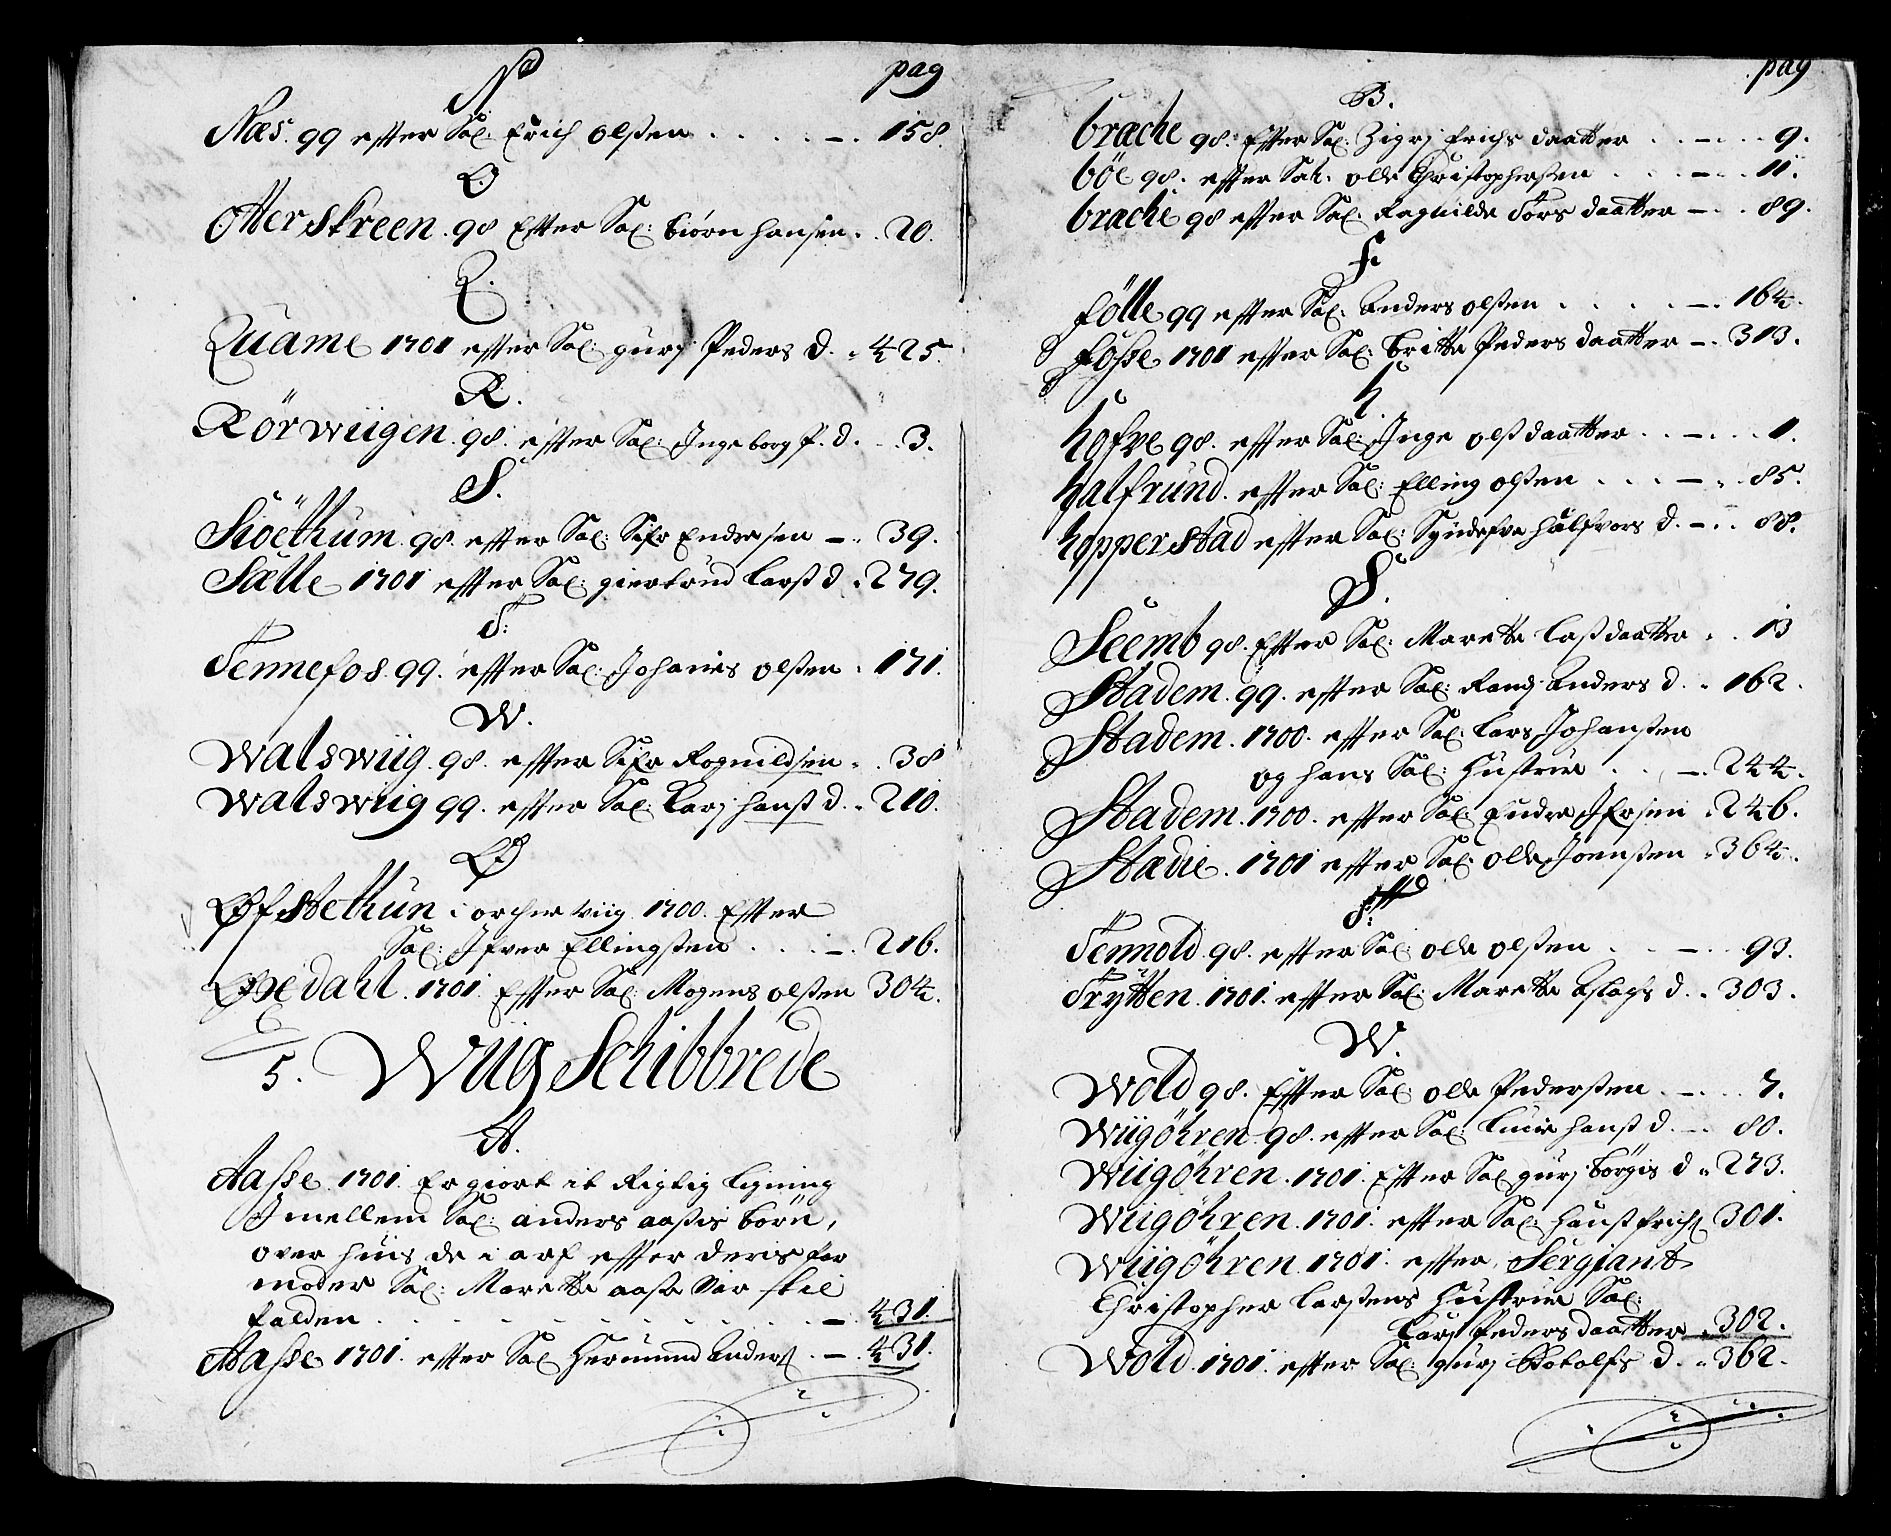 N
pag
Næs. 99 efter Sal: Erich olsen . . . . 158.
O
Otterskreen. 98 Efter Sal: Biørn hansen. . 20.
Q.
Quame 1701 efter Sal: gurj Peders d. . 425.
R.
Rörwiigen. 98. efter Sal: Ingeborg P. d. . . 3.
S.
Siöethum. 98. efter Sal: Sifr Endresen . 39.
Sætte 1701 efter Sal: giertrud Larss d . 279.
T.
Tennefos. 99. efter Sal: Johanis olsen . 171.
W.
Walswiig. 98. efter Sifr Rognildsen . . 38
Walswiig 99. efter Sal: Karj hanss d. . 210.
Ø
Øfstethun i orcher wiig. 1700. Efter
Sal: Ifver Ellingsen . . . 216.
Øxedahl. 1701. Efter Sal: Mogens olsen 304.
5. Wiig Schibbrede
A.
Aasse. 1701. Er giort it Rigtig ligning
Imellem Sal: anders aasis börn,
over huis de i arf efter deris far
moder Sal: Marette aase Var til
falden . . . . . . . 431.
Aasse 1701. efter Sal Hermund Anders . 431.
pag
B.
brache 98: Efter Sal: Zigrj Erichs daatter . . . 9.
böe 98. efter Sal: olle Christophersen . . . 11.
brache 98 efter Sal: Ragnilde Tors daatter . . 89.
F.
fölle 99 efter Sal: Anders olsen . . . . 164.
fösse 1701 efter Sal: Britte Peders daatter . 313.
h.
hofve 98. efter Sal: Inge olss daatter . . . 1.
halfrund. efter Sal: Elling olsen . . . . 85.
hopperstad efter Sal: Syndefve halfvors d. . . 88.
S.
Seemb 98. Efter Sal: Marette Lassdaatter . . 13
Stadem. 99. efter Sal: Randj Anders d. . 162.
Stadem. 1700. efter Sal: Lars Johansen
og hans Sal: Hustrue . . . 244.
Stadem. 1700. efter Sal: Endre Ifersen . 246.
Stædie. 1701 efter Sal: olle Joensen . 364.
T.
Tennold. 98. efter Sal: olle olsen . . . 93.
Trytten. 1701. efter Sal: Marette Aslachs d. . 303.
W.
Wold 98. Efter Sal: olle Pedersen . . . 7.
Wiigöhren. 98. efter Sal: Lucie hanss d. . . 80.
Wiigöhren. 1701. Efter Sal gurj börgis d . 273.
Wiigöhren. 1701. efter Sal: Hanss Erichs 301.
Wiigöhren 1701. efter Sergiant
Christopher Larsens Hustrue Sal:
Karj Peders daatter . 302.
Wold. 1701. efter Sal: gurj Botolfs d. . 362.